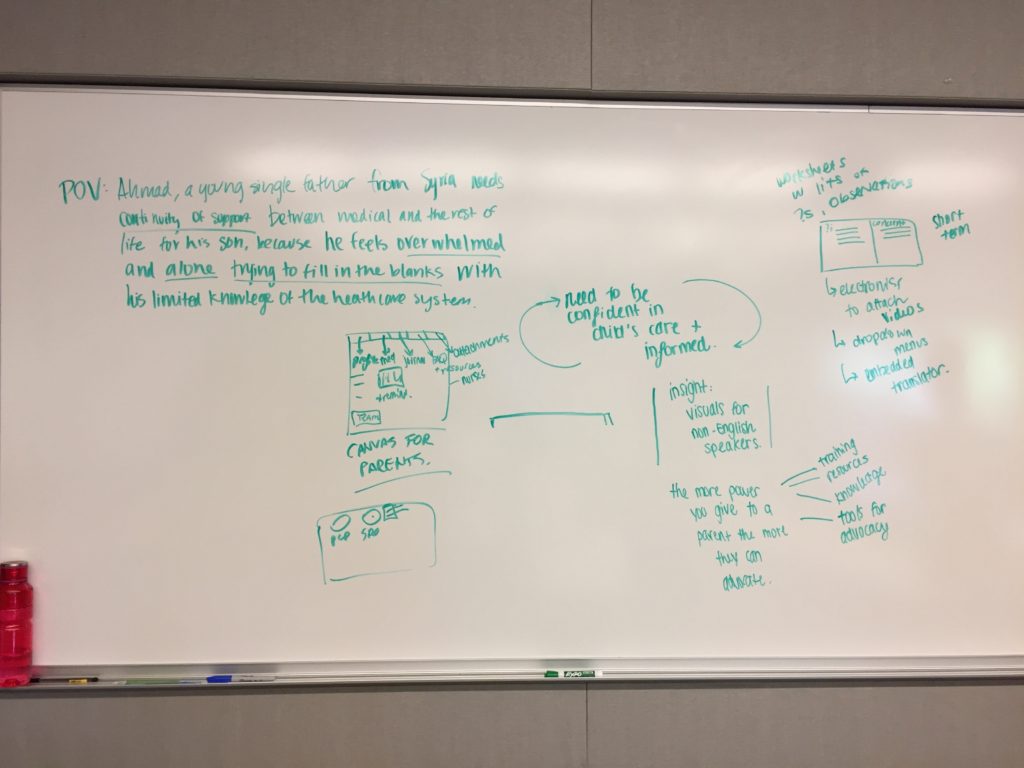 POV: Ahmad, a young single father from Syria needs
continuity of support between medical and the rest of
life for his son, because he feels overwhelmed
and alone trying to fill in the blanks with
his limited knowlege of the heathcare system.
need to be
confident in
child's care +
informed.
attachments
resources
TEAM
CANVAS FOR
PARENTS.
PCP
insight:
visuals for
non-English
speakers.
the more power
you give to a
parent the more
they can
advocate.
training
resources
knowledge
tools for
advocacy
worksheets
?s, observations
?s
short
term
to attach
videos
dropdown
menus
embedded
translator.
EXPO